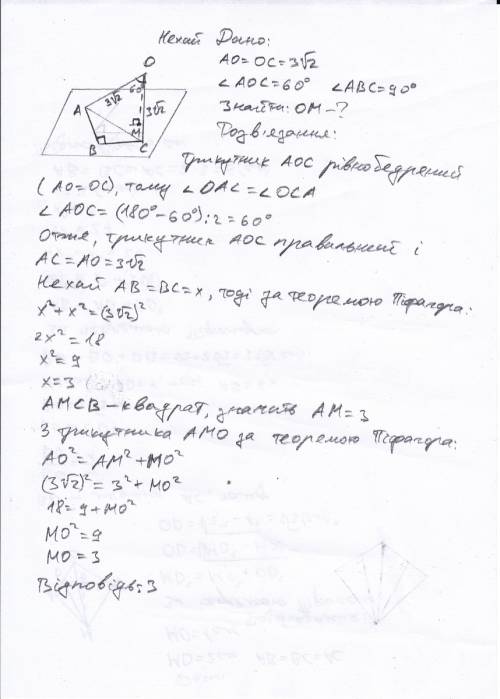 Нехай Дано:
AO=OC=3√2
∠AOC=60° ∠ABC=90°
Знайти: OM-?
Розв'язання:
O
60°
3√2
3√2
A
M
B
C
Трикутник AOC рівнобедрений
(AO=OC), тому ∠OAC=∠OCA
∠AOC=(180°-60°):2=60°
Отже, трикутник AOC правильний і
AC=AO=3√2
Нехай AB=BC=x, тоді за теоремою Піфагора:
x²+x²=(3√2)²
2x²=18
x²=9
x=3
AMCB-квадрат, значить AM=3
З трикутника AMO за теоремою Піфагора:
AO²=AM²+MO²
(3√2)²=3²+MO²
18=9+MO²
MO²=9
MO=3
Відповідь:3